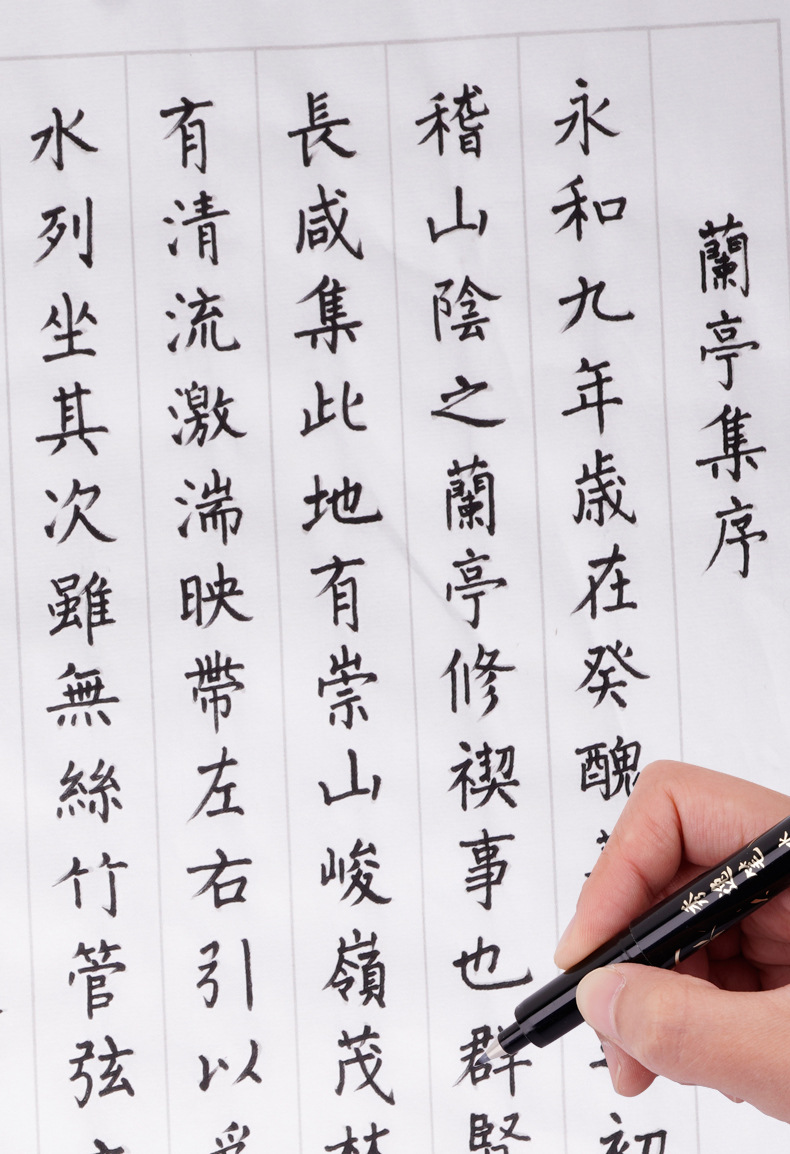 蘭亭集序
永和九年歲在癸醜
初
稽山陰之蘭亭修禊事也群賢
長咸集此地有崇山峻嶺茂林
有清流激湍映帶左右引以
水列坐其次雖無絲竹管弦